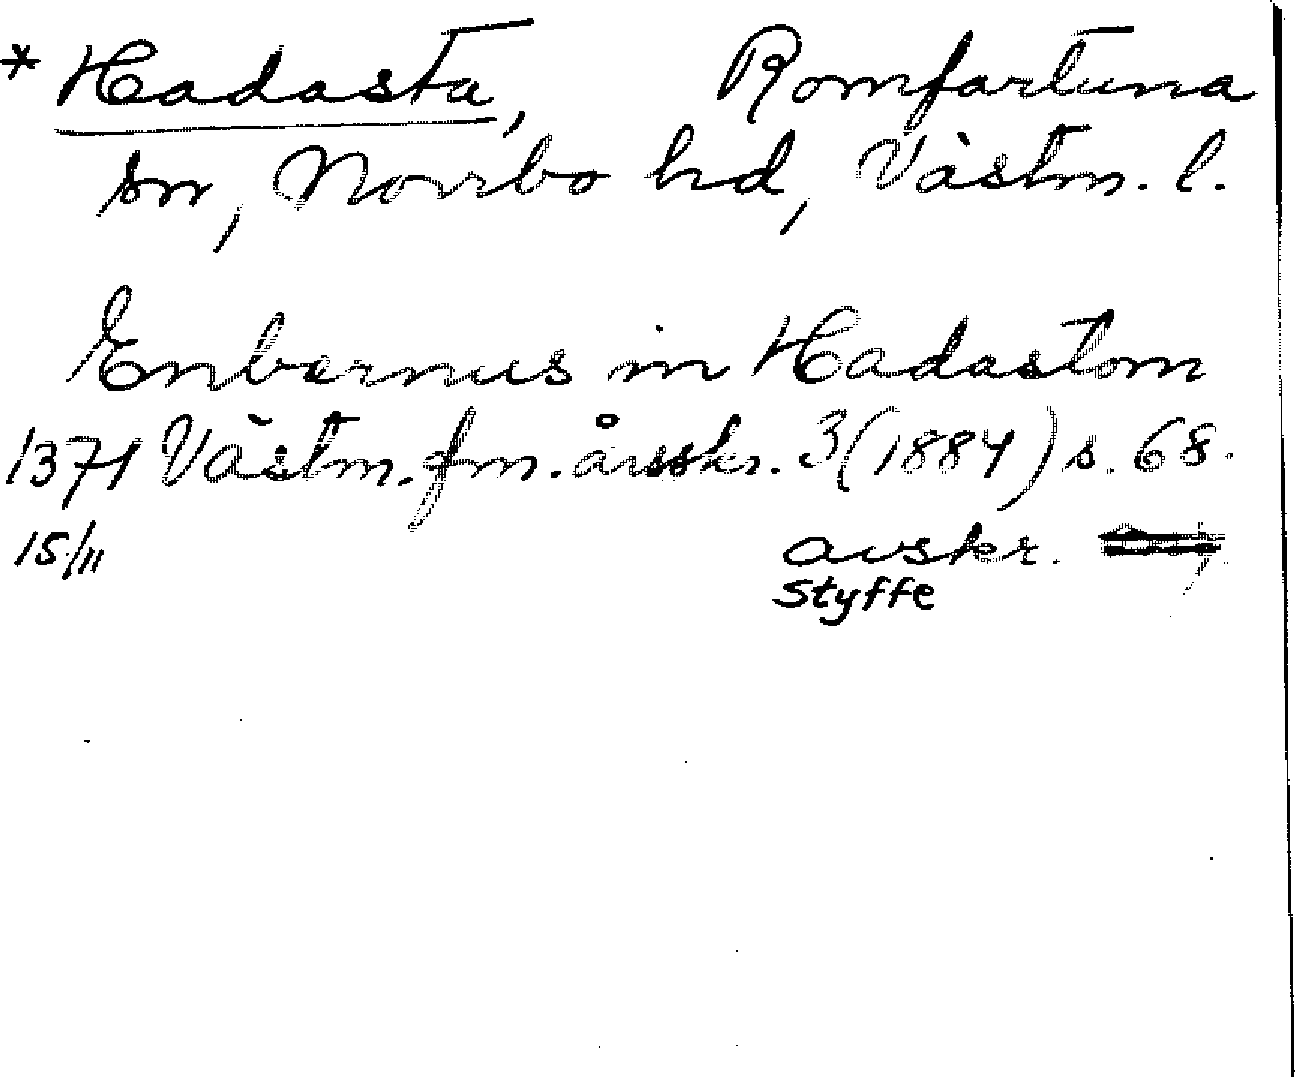 * Hadasta, Romfartuna
sn, Norrbo hd, Västm. l.
Enbernus in Hadastom
1371 Västm. fm. årsskr. 3 (1884) s. 68.
15/11 avskr.
Styffe